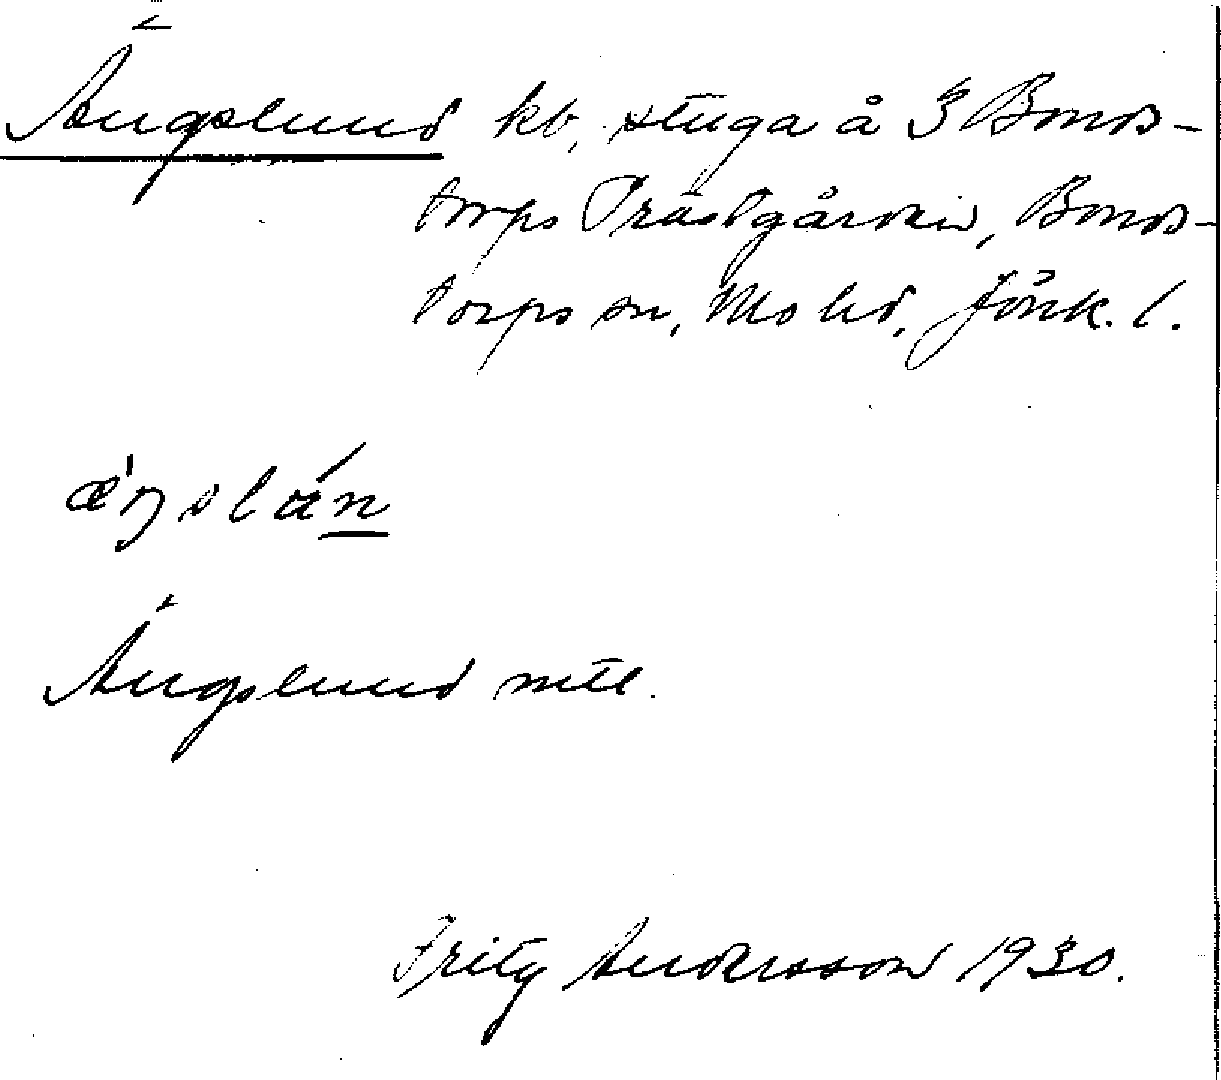 Ängslund kb, stuga å 3 Bonds-
torps Prästgården, Bonds-
torps sn, Mo hd, Jönk. l.
æ̀ŋslán
Ängslund mtl.
Fritz Andersson 1930.